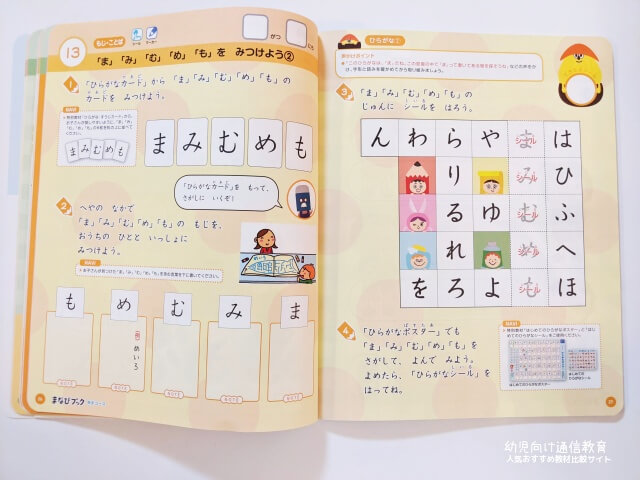 13
もじ・ことば
がつ
にち
「ま」「み」「む」「め」「も」を みつけよう②
1
「ひらがなカード」から 「ま」「み」「む」「め」「も」の
カードを みつけよう。
ま み む め も
「ひらがなカード」を もって、
さがしに いくぞ!
2
へやの なかで
「ま」「み」「む」「め」「も」の もじを、
おうちの ひとと いっしょに
みつけよう。
も め む み ま
めいろ
まなびブック
ひらがな①
3
「ま」「み」「む」「め」「も」の
じゅんに シールを はろう。
ん わ ら や ま は
り み ひ
る ゆ む ふ
れ め へ
を ろ よ も ほ
4
「ひらがなポスター」でも
「ま」「み」「む」「め」「も」を
さがして、よんで みよう。
よめたら、「ひらがなシール」を
はってね。
幼児向け通信教育
人気おすすめ教材比較サイト